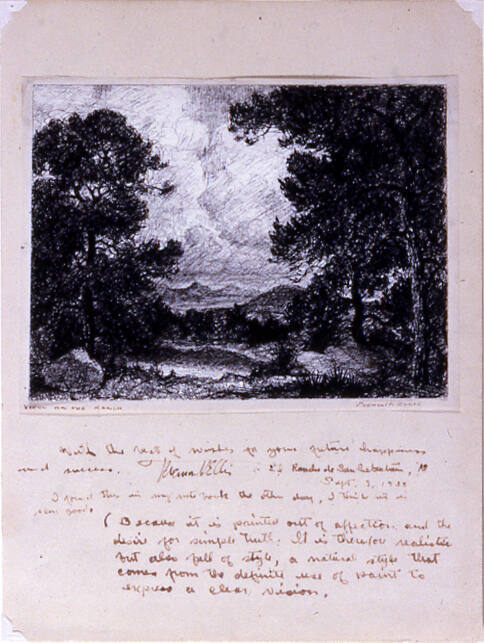 VIEW ON THE RANCH
With the best of wishes for your future happiness
and success. Fremont Ellis El Rancho de San Sebastian,
Sept. 3,
I found this in my note book the other day, I think it is
very good
(Because it is painted out of affection and the
desire for simple truth. It is therefor realistic
but also full of style, a natural style that
comes from the definite use of paint to
express a clear vision.